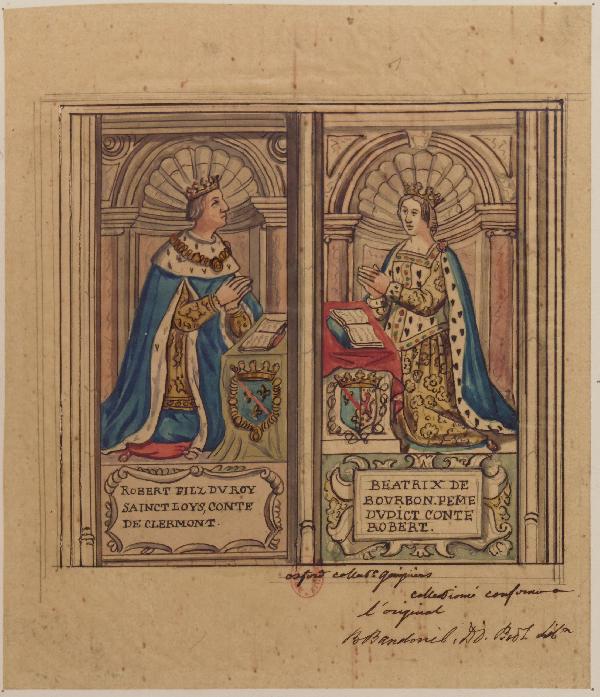 ROBERT FILZ DV ROY
SAINCT LOYS, CONTE
DE CLERMONT.
BEATRIX DE
BOVRBON. FEME
DVDICT CONTE
ROBERT.
oxford
collationné conforme a
l'original
B. Bandinel, D.D.